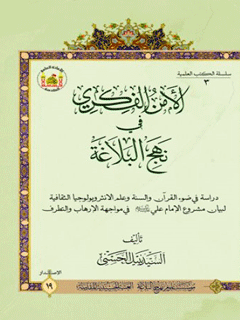 سلسلة الكتب العلمية
٣
الأمن الفكري
في
نهج البلاغة
دراسة في ضوء القرآن والسنة وعلم الانثروبولوجيا الثقافية
لبيان مشروع الإمام علي في مواجهة الإرهاب والتطرف
تأليف
السيد نبيل الحسني
الاصدار
١٩